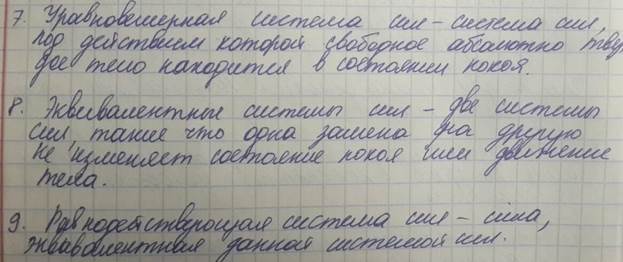 7. Уравновешенная система сил – система сил,
под действием которой свободное абсолютно твёр
дое тело находится в состоянии покоя.
8. Эквивалентные системы сил – две системы
сил, такие что одна замена на другую
не изменяет состояние покоя или движение
тела.
9. Равнодействующая система сил – сила,
эквивалентная данной системой сил.